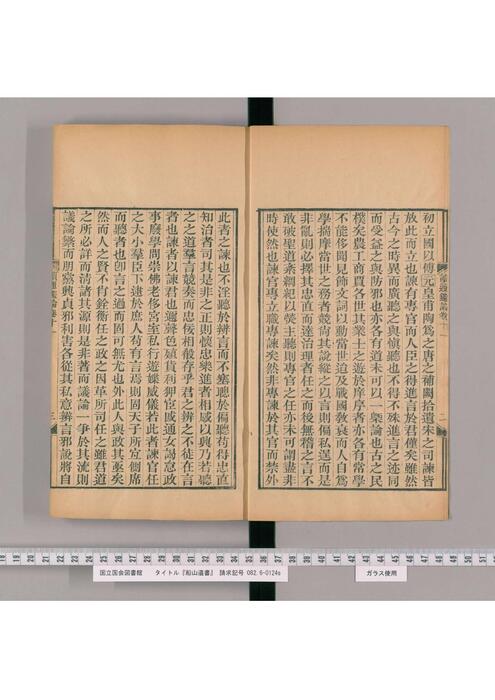 初立國以傅元皇甫陶爲之唐之補闕拾遺宋之司諫皆
放此而立也諫有專官而人臣之得進言於君僅矣雖然
古今之時異而廣聽之與愼聽也不得不殊進言之迹同
而受益之與防邪也亦各有道未可以一槩論也古之民
樸矣農工商賈各世其業士之遊於庠序者亦各有常學
不能侈聞見飾文詞以動當世迨及戰國敎衰而人自爲
學揣摩當世之務者競尙其說縱之以言則相私逞而是
非亂則必擇其忠直而達治理者任之而後無稽之言不
敢破聖道紊綱紀以熒主聽則專官之任亦未可謂盡非
時使然也諫官專立職專諫矣然非專諫於其官而禁外
此者之諫也不淫聽於辨言而不塞聽於偏聽苟得忠直
知治者司其是非之正則懷忠樂進者相感以興乃若聽
之之道羣言競奏而忠佞相殽存乎君之辨之不徒在言
者也諫者以諫君也邇聲色殖貨利狎宦戚通女謁怠政
事廢學問崇佛老侈宮室私行遊媟威儀若此者諫官任
之大小羣臣下逮於庶人苟有言焉則固天子所宜側席
而聽者也卽言之過而固可無尤也外此人與政其亟矣
然而人之賢不肖銓衡任之政之因革所司任之雖君道
之所必詳而淸諸其源則是非著而議論一爭於其流則
議論繁而朋黨興貞邪利害各從其私意辨言邪說將自
讀通鑑論卷十一
二
三
国立国会図書館 タイトル『船山遺書』 請求記号 082.6-0124s
ガラス使用